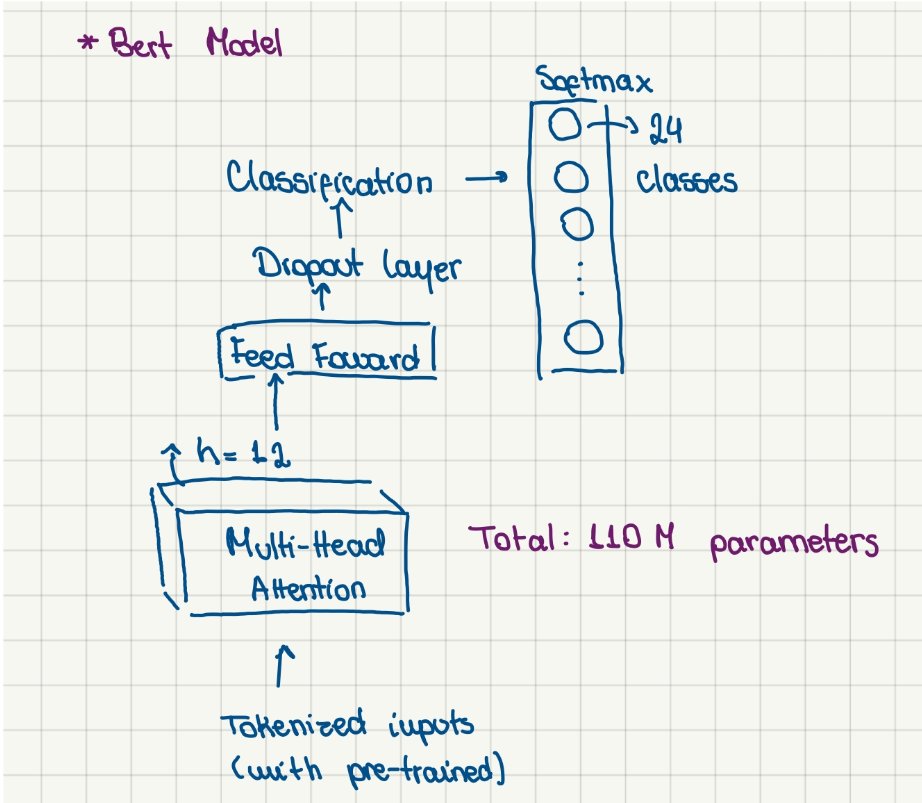 * Bert Model
Softmax
24
classes
Classification
Dropout layer
Feed Foward
h = 12
Multi-Head
Attention
Total: 110 M parameters
Tokenized inputs
(with pre-trained)